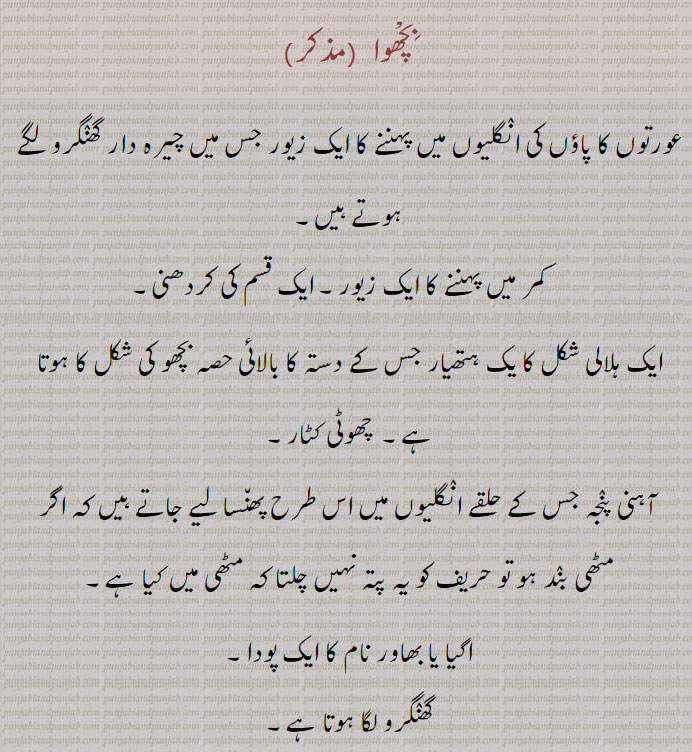 بِچْھوا (مذکر)
عورتوں کا پاؤں کی انْگلیوں میں پہننے کا ایک زیور جس میں چیرہ دار گھنْگرو لگے
ہوتے ہیں ۔
کمر میں پہننے کا ایک زیور ۔ ایک قسم کی کردھنی ۔
ایک ہلالی شکل کا یک ہتھیار جس کے دستہ کا بالائی حصہ بچھو کی شکل کا ہوتا
ہے ۔ چھوٹی کٹار ۔
آہنی پنْجہ جس کے حلقے انْگلیوں میں اس طرح پھنّسا لیے جاتے ہیں کہ اگر
مٹھی بنْد ہو تو حریف کو یہ پتہ نہیں چلتا کہ مٹھی میں کیا ہے ۔
اگیا یا بھاور نام کا ایک پودا ۔
گھنْگرو لگا ہوتا ہے ۔